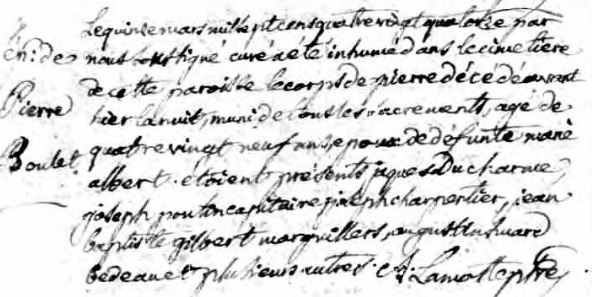 Le quinze mars mil sept cens quatre vingt quatorze par
En: de nous soussigné curé a été inhumé dans le cimetiere
de cette paroisse le corps de pierre décédé avant
Pierre hier la nuit, muni de tous les sacrements, agé de
quatre vingt neuf ans, epoux de defunte marie
Boulet albert. etoient présents jaques Ducharme,
joseph poulin capitaine joseph charpentier, jean
baptiste gilbert marguillers, augustin huard
bedeau et plusieurs autres. Lamotte ptre